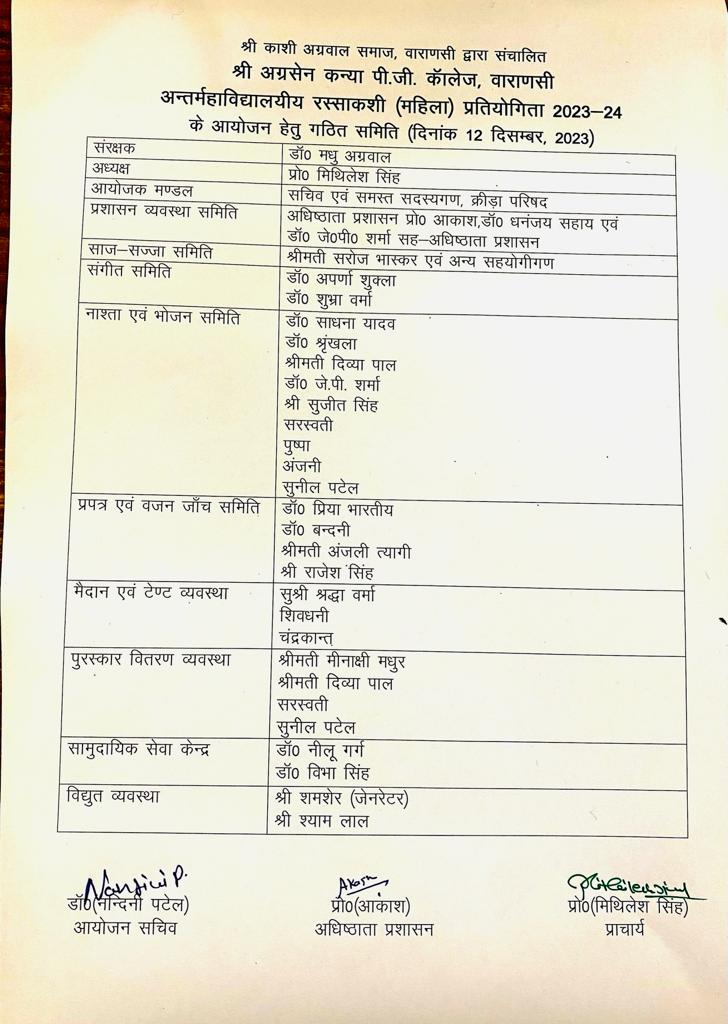 श्री काशी अग्रवाल समाज, वाराणसी द्वारा संचालित
श्री अग्रसेन कन्या पी.जी. कॅालेज, वाराणसी
अन्तर्महाविद्यालयीय रस्साकशी (महिला) प्रतियोगिता 2023–24
के आयोजन हेतु गठित समिति (दिनांक 12 दिसम्बर, 2023)
संरक्षक डॉ0 मधु अग्रवाल
अध्यक्ष प्रो0 मिथिलेश सिंह
आयोजक मण्डल सचिव एवं समस्त सदस्यगण, क्रीड़ा परिषद
प्रशासन व्यवस्था समिति अधिष्ठाता प्रशासन प्रो0 आकाश,डॉ0 धनंजय सहाय एवं
डॉ0 जे0पी0 शर्मा सह–अधिष्ठाता प्रशासन
साज–सज्जा समिति श्रीमती सरोज भास्कर एवं अन्य सहयोगीगण
संगीत समिति डॉ0 अपर्णा शुक्ला
डॉ0 शुभ्रा वर्मा
नाश्ता एवं भोजन समिति डॉ0 साधना यादव
डॉ0 श्रृंखला
श्रीमती दिव्या पाल
डॉ0 जे.पी. शर्मा
श्री सुजीत सिंह
सरस्वती
पुष्पा
अंजनी
सुनील पटेल
प्रपत्र एवं वजन जाँच समिति डॉ0 प्रिया भारतीय
डॉ0 बन्दनी
श्रीमती अंजली त्यागी
श्री राजेश सिंह
मैदान एवं टेण्ट व्यवस्था सुश्री श्रद्धा वर्मा
शिवधनी
चंद्रकान्त्
पुरस्कार वितरण व्यवस्था श्रीमती मीनाक्षी मधुर
श्रीमती दिव्या पाल
सरस्वती
सुनील पटेल
सामुदायिक सेवा केन्द्र डॉ0 नीलू गर्ग
डॉ0 विभा सिंह
विद्युत व्यवस्था श्री शमशेर (जेनरेटर)
श्री श्याम लाल
Nandini P. Akash
डॉ0(नन्दिनी पटेल) प्रो0(आकाश) प्रो0(मिथिलेश सिंह)
आयोजन सचिव अधिष्ठाता प्रशासन प्राचार्य